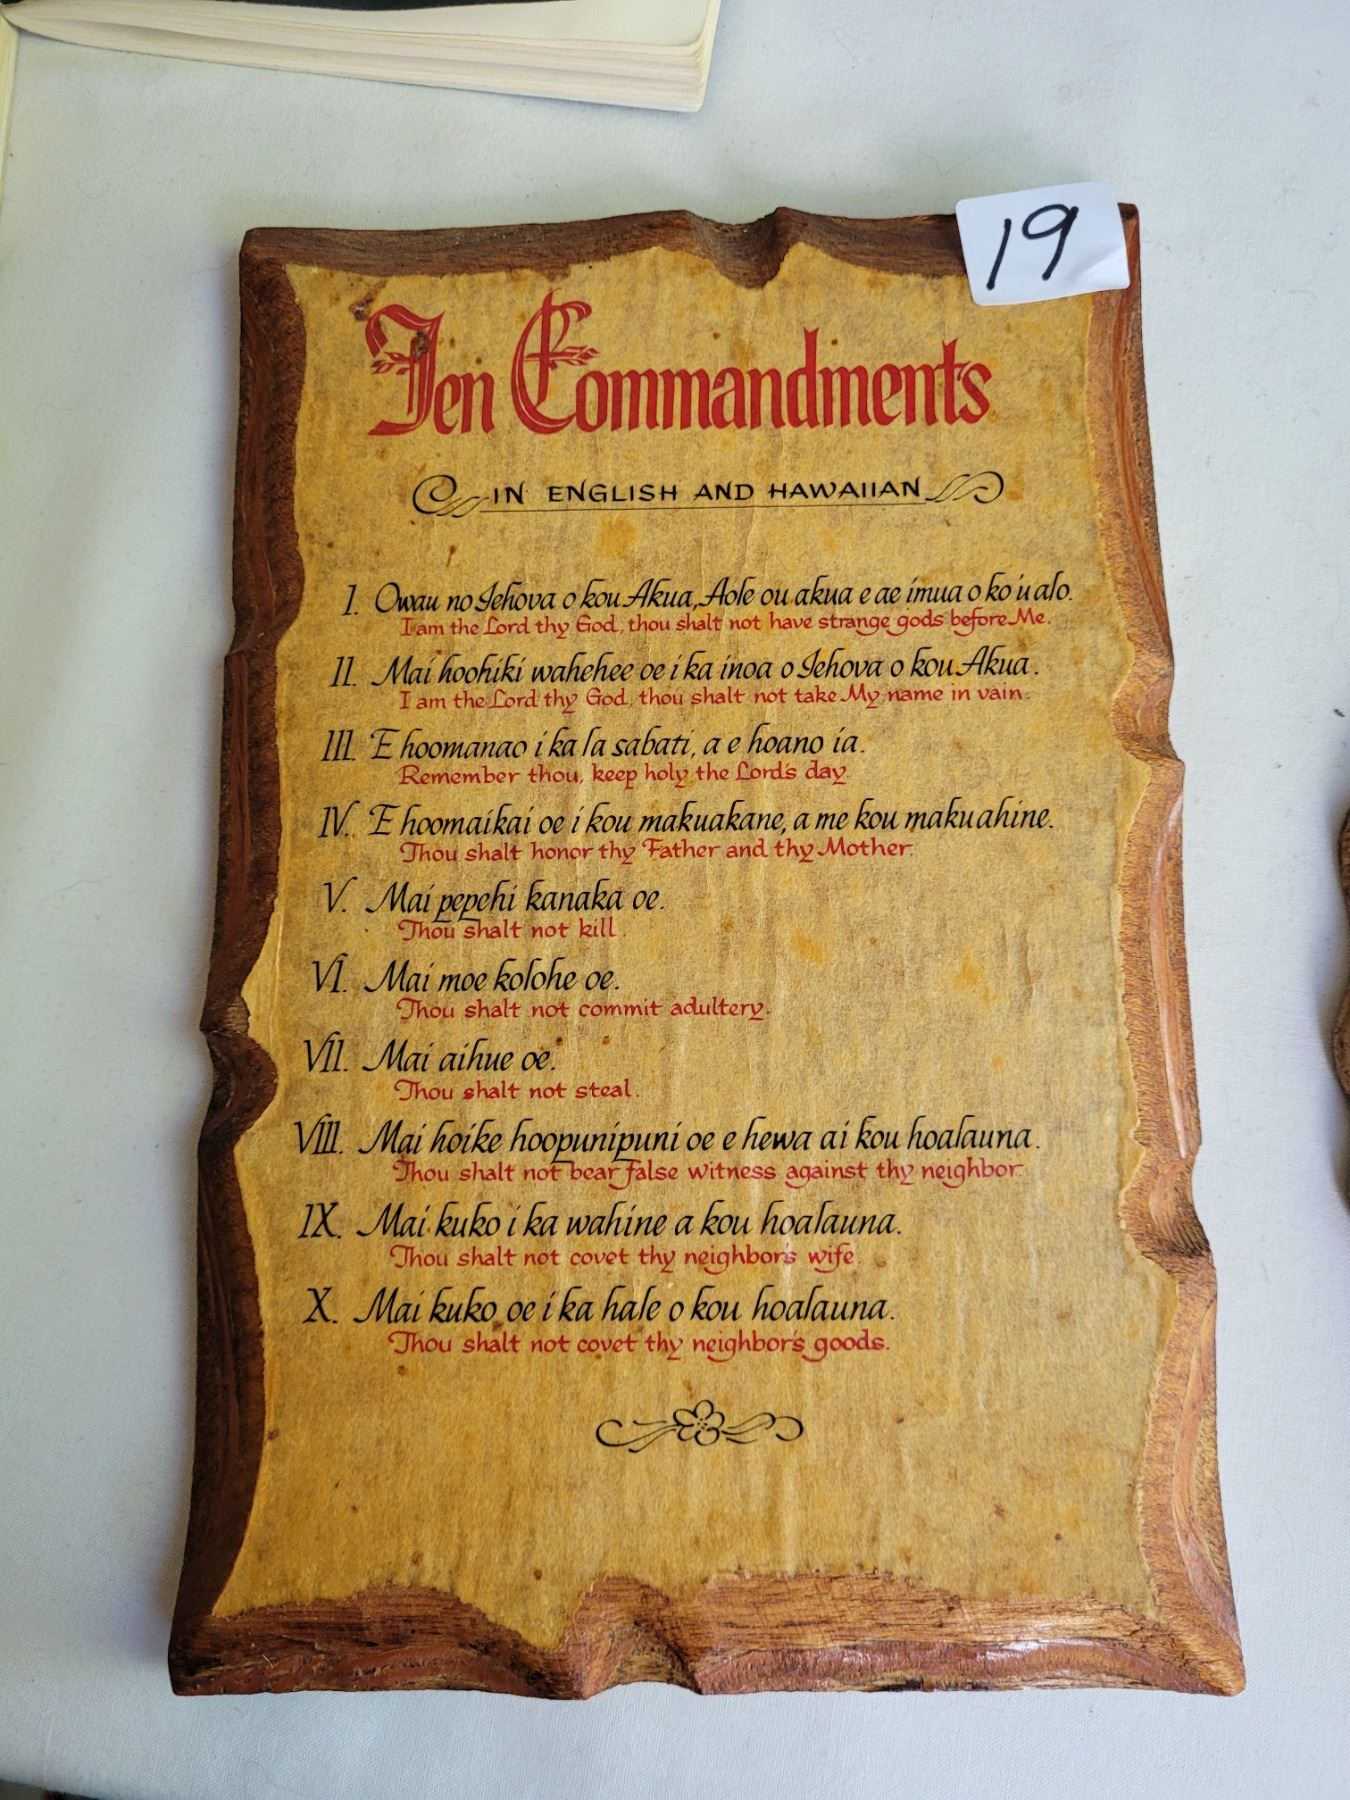 19
Ten Commandments
IN ENGLISH AND HAWAIIAN
I. Owau no Iehova o kou Akua, Aole ou akua e ae imua o ko'u alo.
I am the Lord thy God, thou shalt not have strange gods before Me.
II. Mai hoohiki wahehee oe i ka inoa o Iehova o kou Akua.
I am the Lord thy God, thou shalt not take My name in vain.
III. E hoomanao i ka la sabati, a e hoano ia.
Remember thou, keep holy the Lord's day.
IV. E hoomaikai oe i kou makuakane, a me kou makuahine.
Thou shalt honor thy Father and thy Mother.
V. Mai pepehi kanaka oe.
Thou shalt not kill.
VI. Mai moe kolohe oe.
Thou shalt not commit adultery.
VII. Mai aihue oe.
Thou shalt not steal.
VIII. Mai hoike hoopunipuni oe e hewa ai kou hoalauna.
Thou shalt not bear false witness against thy neighbor.
IX. Mai kuko i ka wahine a kou hoalauna.
Thou shalt not covet thy neighbor's wife.
X. Mai kuko oe i ka hale o kou hoalauna.
Thou shalt not covet thy neighbor's goods.